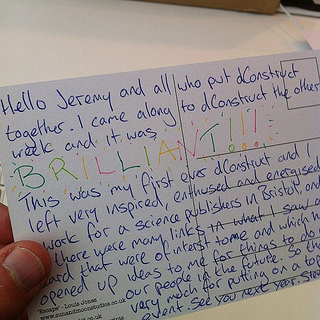 Hello Jeremy and all who put dConstruct
together. I came along to dConstruct the other
week and it was
BRILLIANT!!!
This was my first ever dConstruct and I
left very inspired, enthused and energised
work for a science publishers in Bristol, and
there were many links in what I saw a
ard that were of interst to me and which h
opened up ideas to me for things to do
our people in the future. So th
very much for putting on a top
event. See you next year.
"Escape" - Louis Jones
www.sunandmoonstudios.co.uk